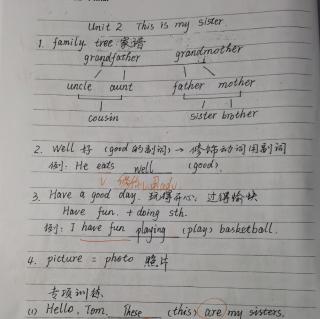 Unit 2 This is my sister.
1. family tree 家谱
grandfather grandmother
uncle aunt father mother
cousin sister brother
2. well 好 (good的副词) → 修饰动词用副词
例: He eats well (good).
3. Have a good day. 玩得开心, 过得愉快
Have fun. + doing sth.
例: I have fun playing (play) basketball.
4. picture = photo 照片
专项训练
(1) Hello, Tom. These (this) are my sisters.